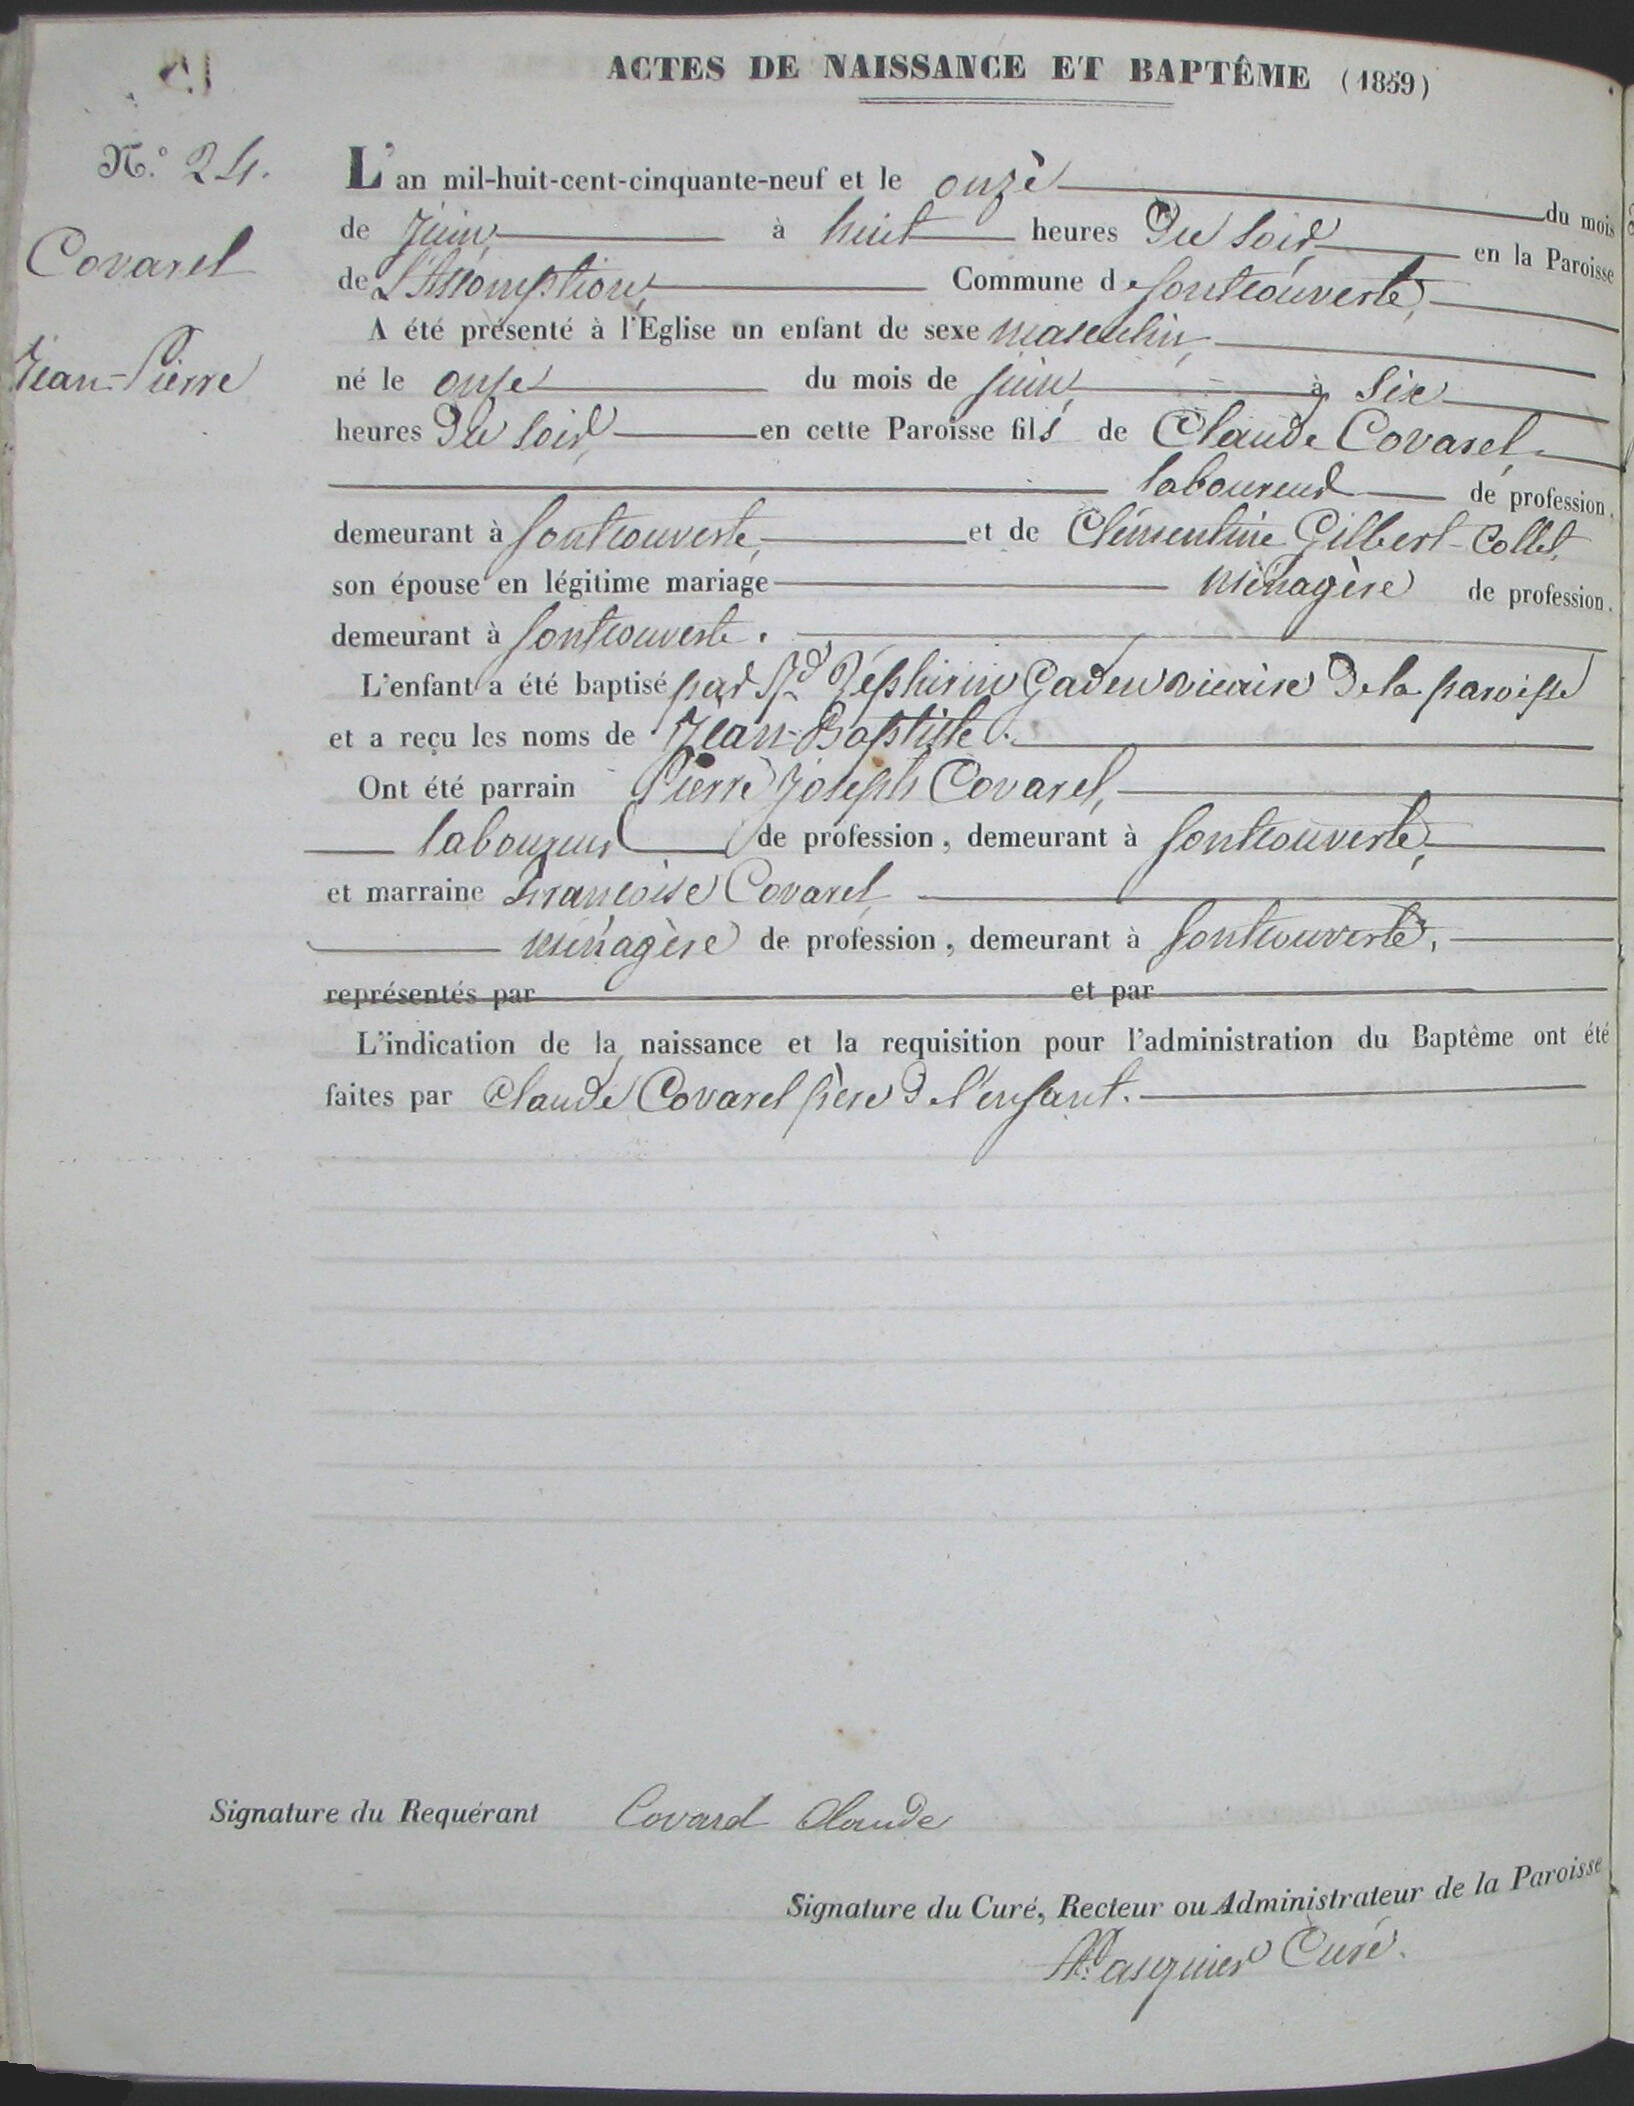 ACTES DE NAISSANCE ET BAPTÊME (1859)
N.° 24.
Covarel
Jean-Pierre
L'an mil-huit-cent-cinquante-neuf et le onze du mois
de juin, à huit heures Du soir, en la Paroisse
de L'Assomption, Commune de fontcouverte,
A été présenté à l'Eglise un enfant de sexe masculin,
né le onze du mois de juin, à six
heures Du soir, en cette Paroisse fils de Claude Covarel,
laboureur de profession,
demeurant à fontcouverte, et de Clémentine Gilbert-Collet,
son épouse en légitime mariage ménagère de profession,
demeurant à fontcouverte.
L'enfant a été baptisé par Rd Zéphirin Gaden vicaire De la paroisse
et a reçu les noms de Jean-Baptiste.
Ont été parrain Pierre Joseph Covarel,
laboureur de profession, demeurant à fontcouverte,
et marraine Françoise Covarel
ménagère de profession, demeurant à fontcouverte,
représentés par et par
L'indication de la naissance et la requisition pour l'administration du Baptême ont été
faites par Claude Covarel père De l'enfant.
Signature du Requérant Covarel Claude
Signature du Curé, Recteur ou Administrateur de la Paroisse
Pasquier Curé.